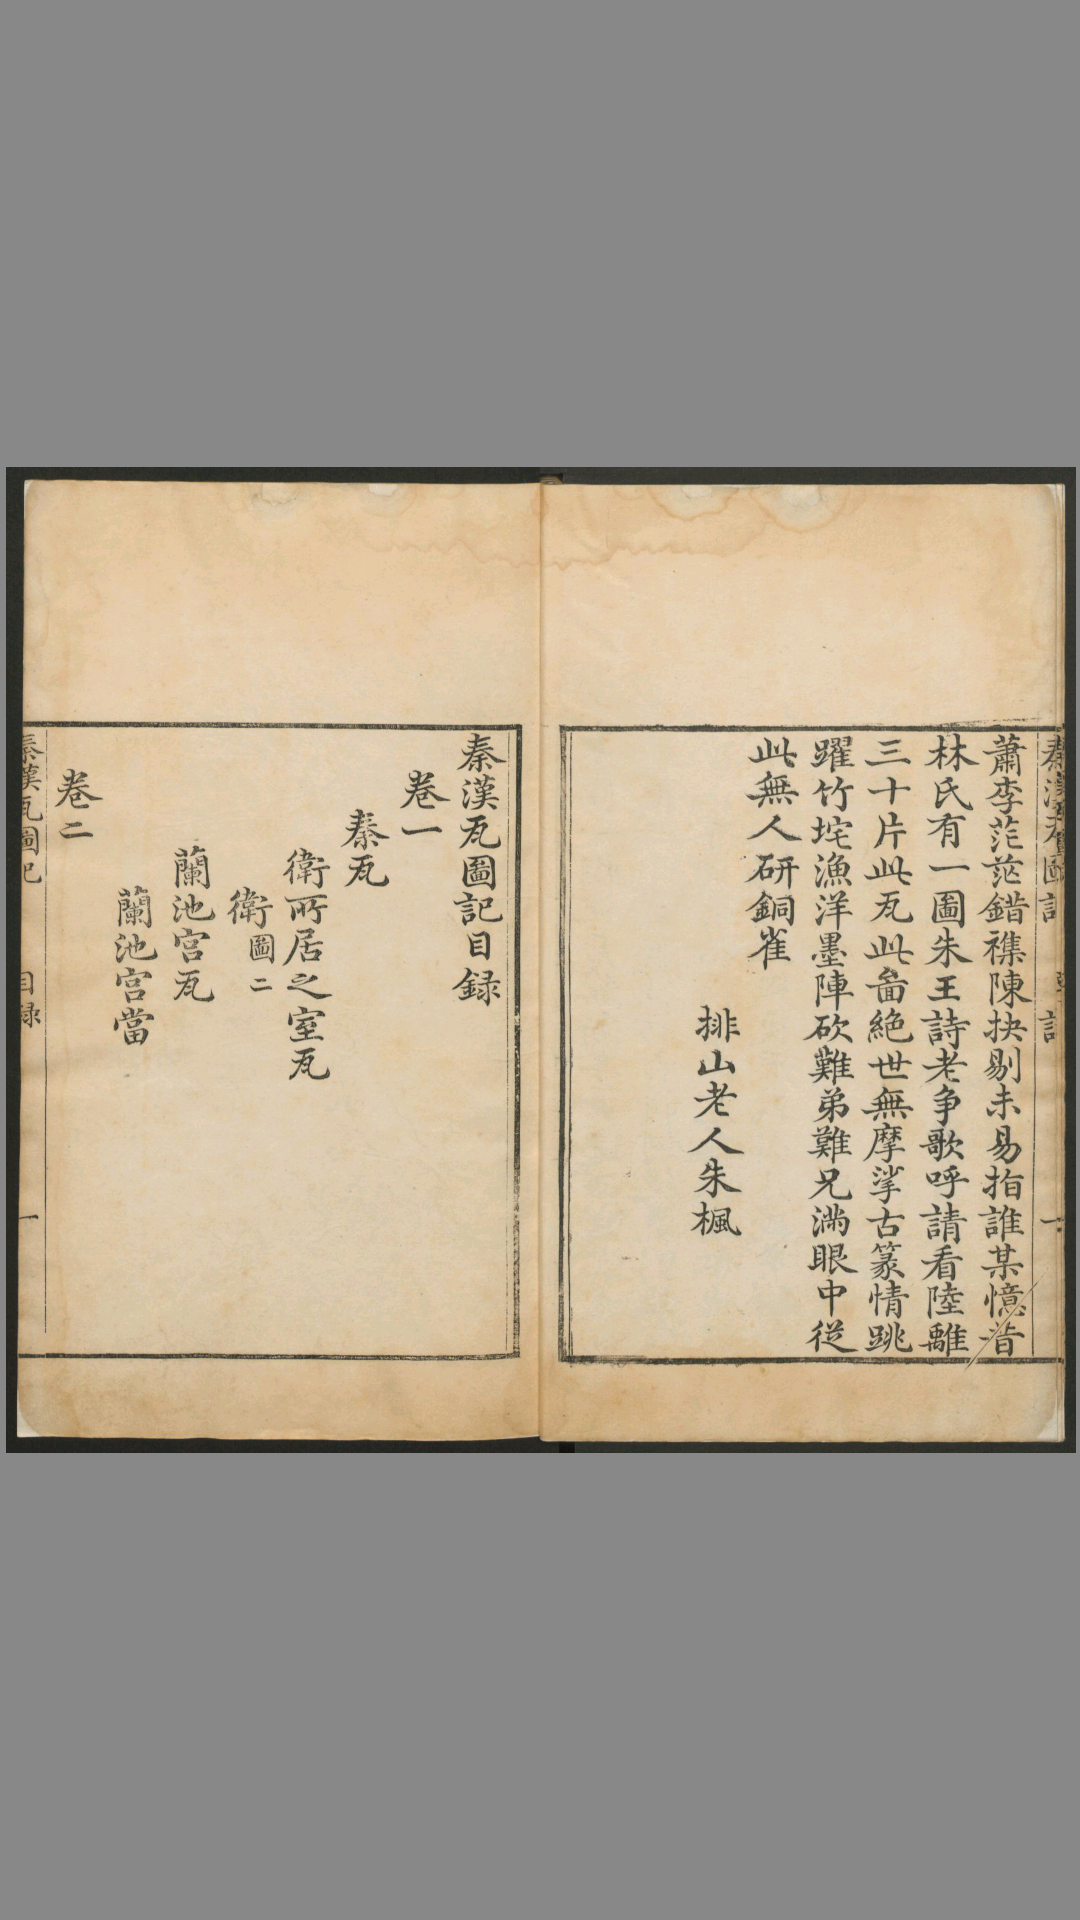 蕭李茫茫錯襍陳抉剔未易指誰某憶昔
林氏有一圖朱王詩老争歌呼請看陸離
三十片此瓦此啚絶世無摩挲古篆情跳
躍竹垞漁洋墨陣砍難弟難兄滿眼中從
此無人研銅雀
排山老人朱楓
秦漢瓦圖記目録
卷一
秦瓦
衛所居之室瓦
衛圖二
蘭池宫瓦
蘭池宫當
卷二
秦漢瓦圖記 目録 一